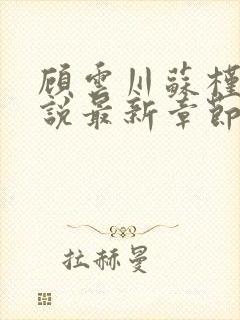 顾雲川蘇槿
說最新章節
拉赫曼